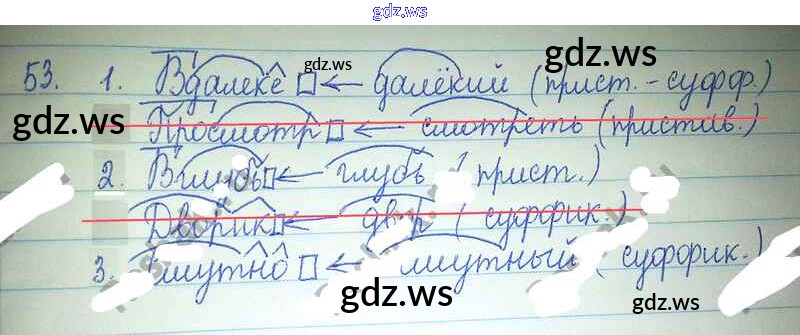 gdz.ws
53. 1. Вдалеке ← далёкий (прист.-суфф.)
gdz.ws
gdz.ws
Просмотр ← смотреть (пристав.)
gdz.ws
2. Вглубь ← глубь (прист.)
gdz.ws
Дворик ← двор (суффик.)
3. Смутно ← смутный (суффик.)
gdz.ws
gdz.ws